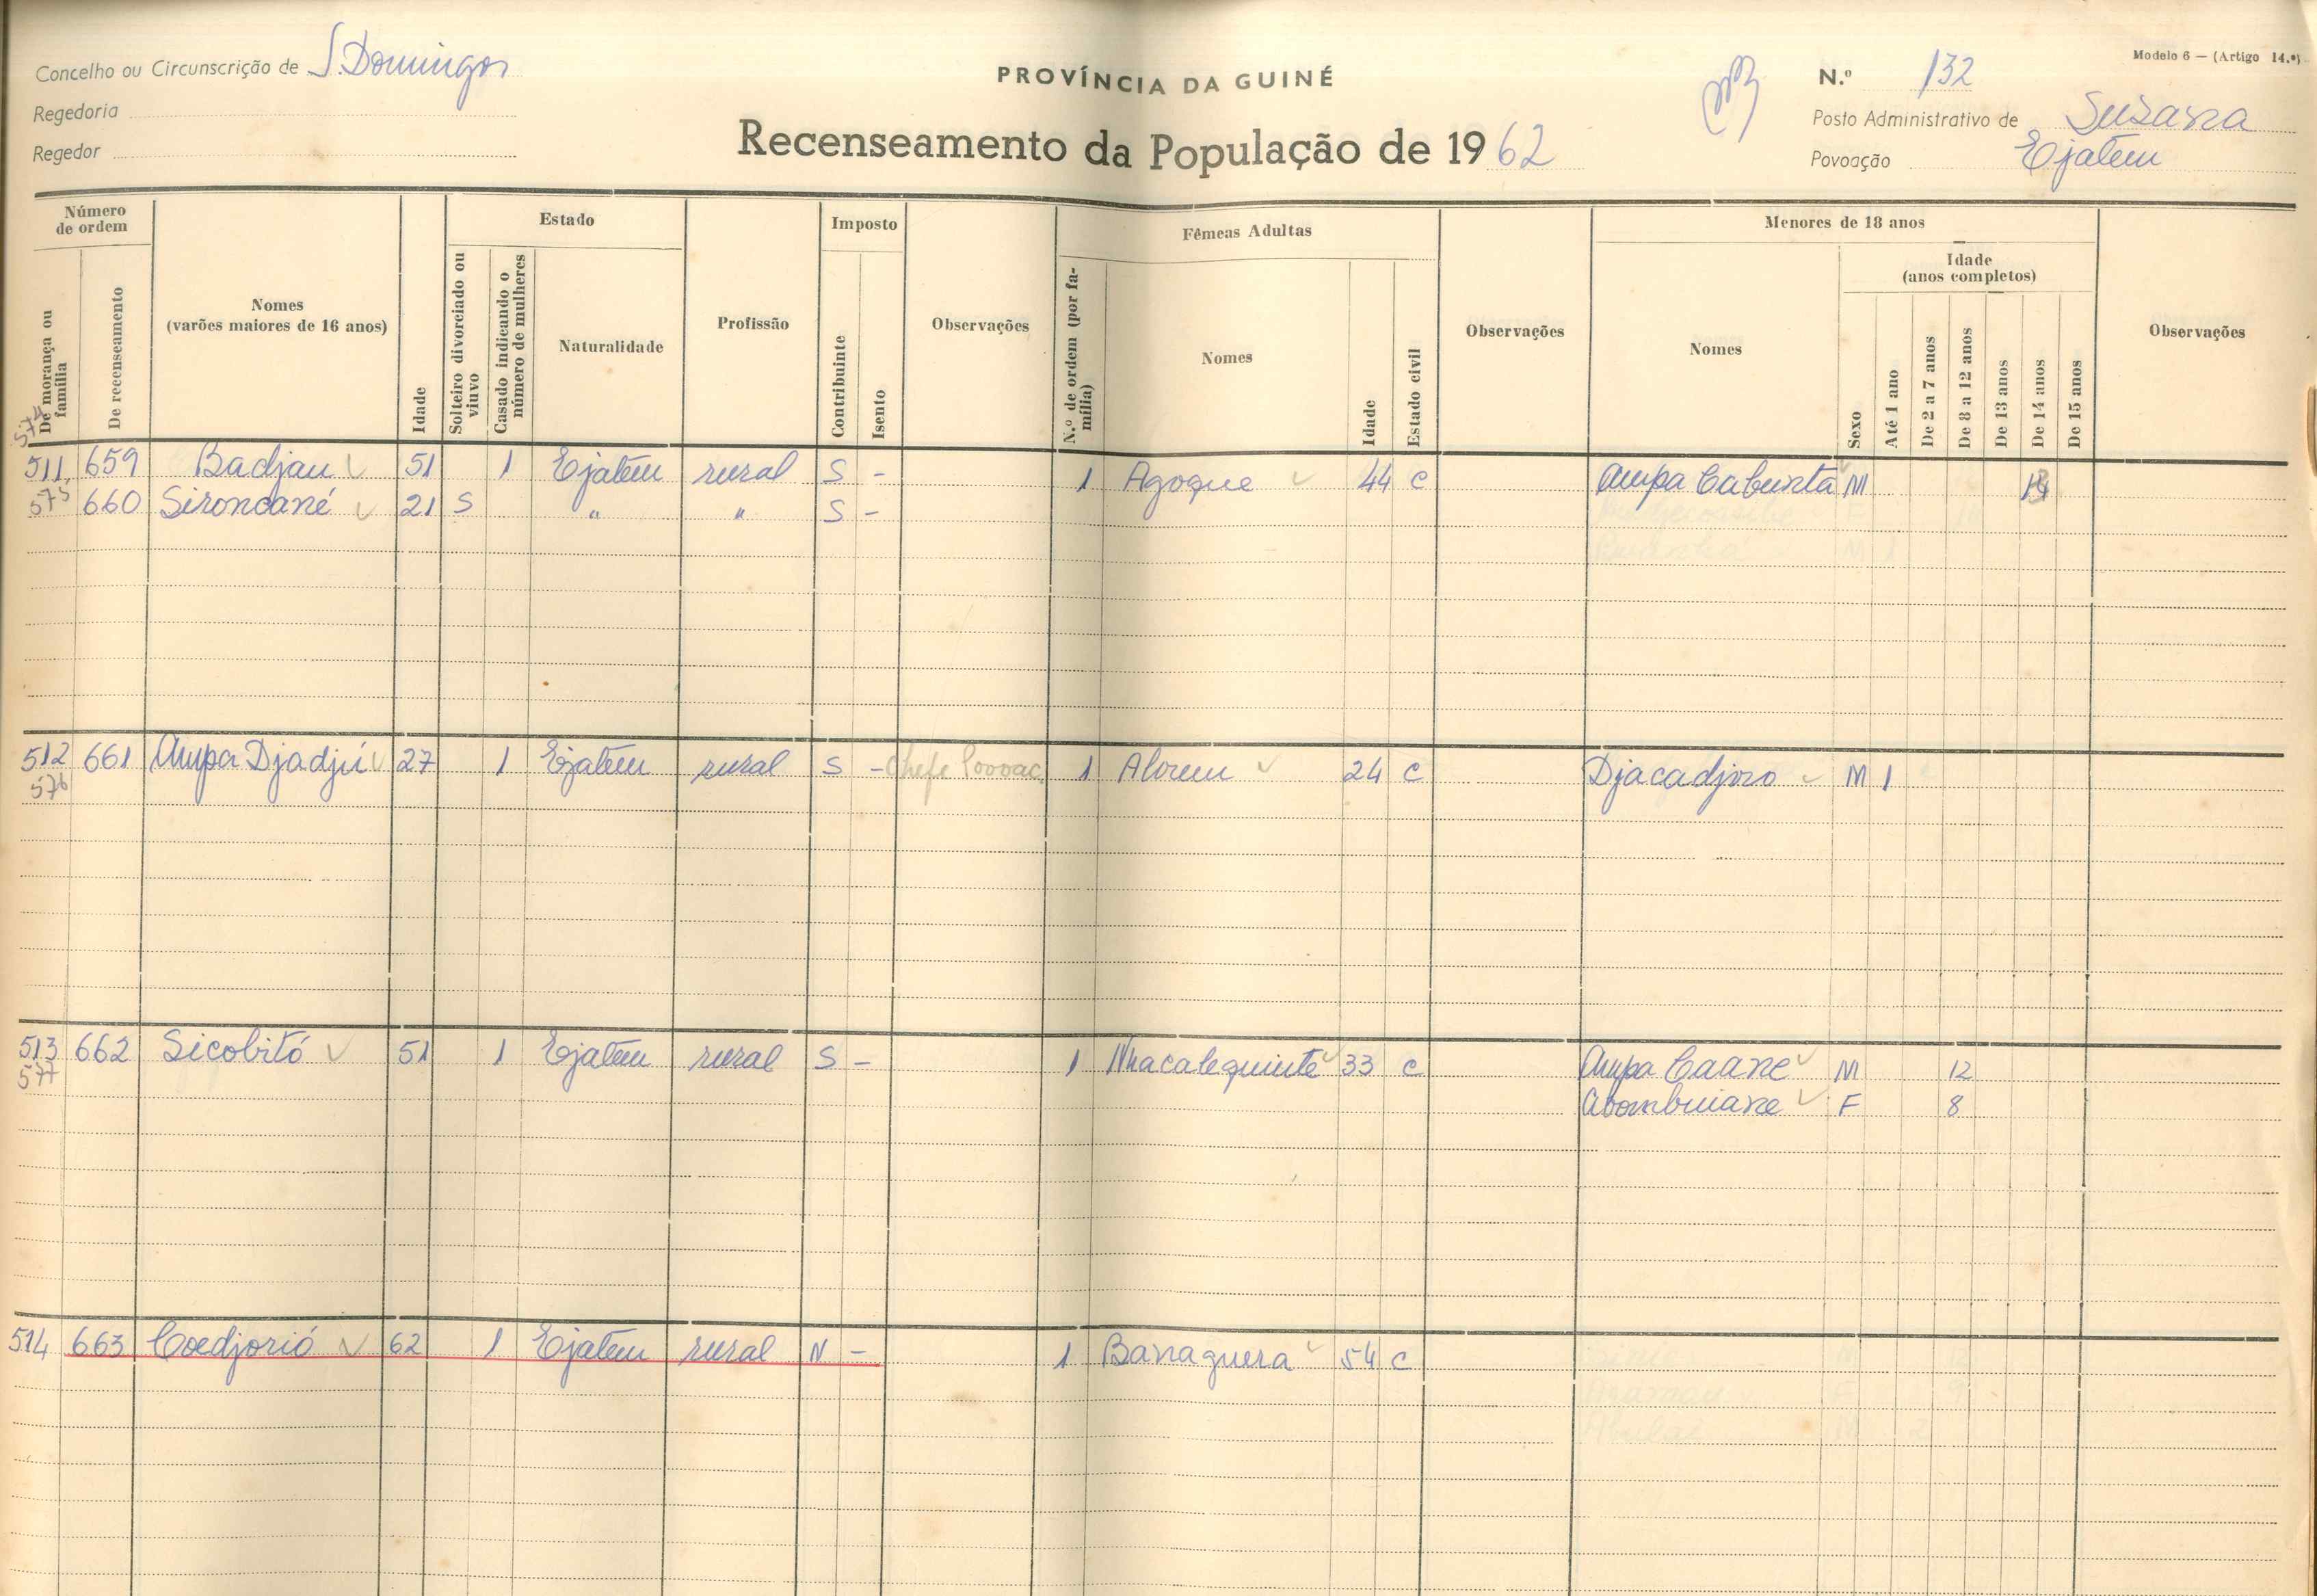 Concelho ou Circunscrição de S. Domingos
Regedoria
Regedor
PROVÍNCIA DA GUINÉ
Recenseamento da População de 1962
Modelo 6 — (Artigo 14.º)
N.º 132
Posto Administrativo de Susana
Povoação Ejatem
Número de ordem
De morança ou família
De recenseamento
Nomes (varões maiores de 16 anos)
Idade
Estado
Solteiro divorciado ou viuvo
Casado indicando o número de mulheres
Naturalidade
Profissão
Imposto
Contribuinte
Isento
Observações
Fêmeas Adultas
N.º de ordem (por família)
Nomes
Idade
Estado civil
Observações
Menores de 18 anos
Nomes
Sexo
Idade (anos completos)
Até 1 ano
De 2 a 7 anos
De 8 a 12 anos
De 13 anos
De 14 anos
De 15 anos
Observações
574
511 659 Badjau 51 1 Ejatem rural S - 1 Agoque 44 C Ampa Cabunta M
575 660 Sironcané 21 S " " S -
512 661 Ampa Djadjú 27 1 Ejatem rural S - Chefe Povoaç. 1 Alorem 24 C Djacadjoro M 1
576
513 662 Sicobitó 51 1 Ejatem rural S - 1 Nhacalequinte 33 C Ampa Caane M 12
577 Abombuiane F 8
514 663 Coedjorió 62 1 Ejatem rural N - 1 Banaguera 54 C